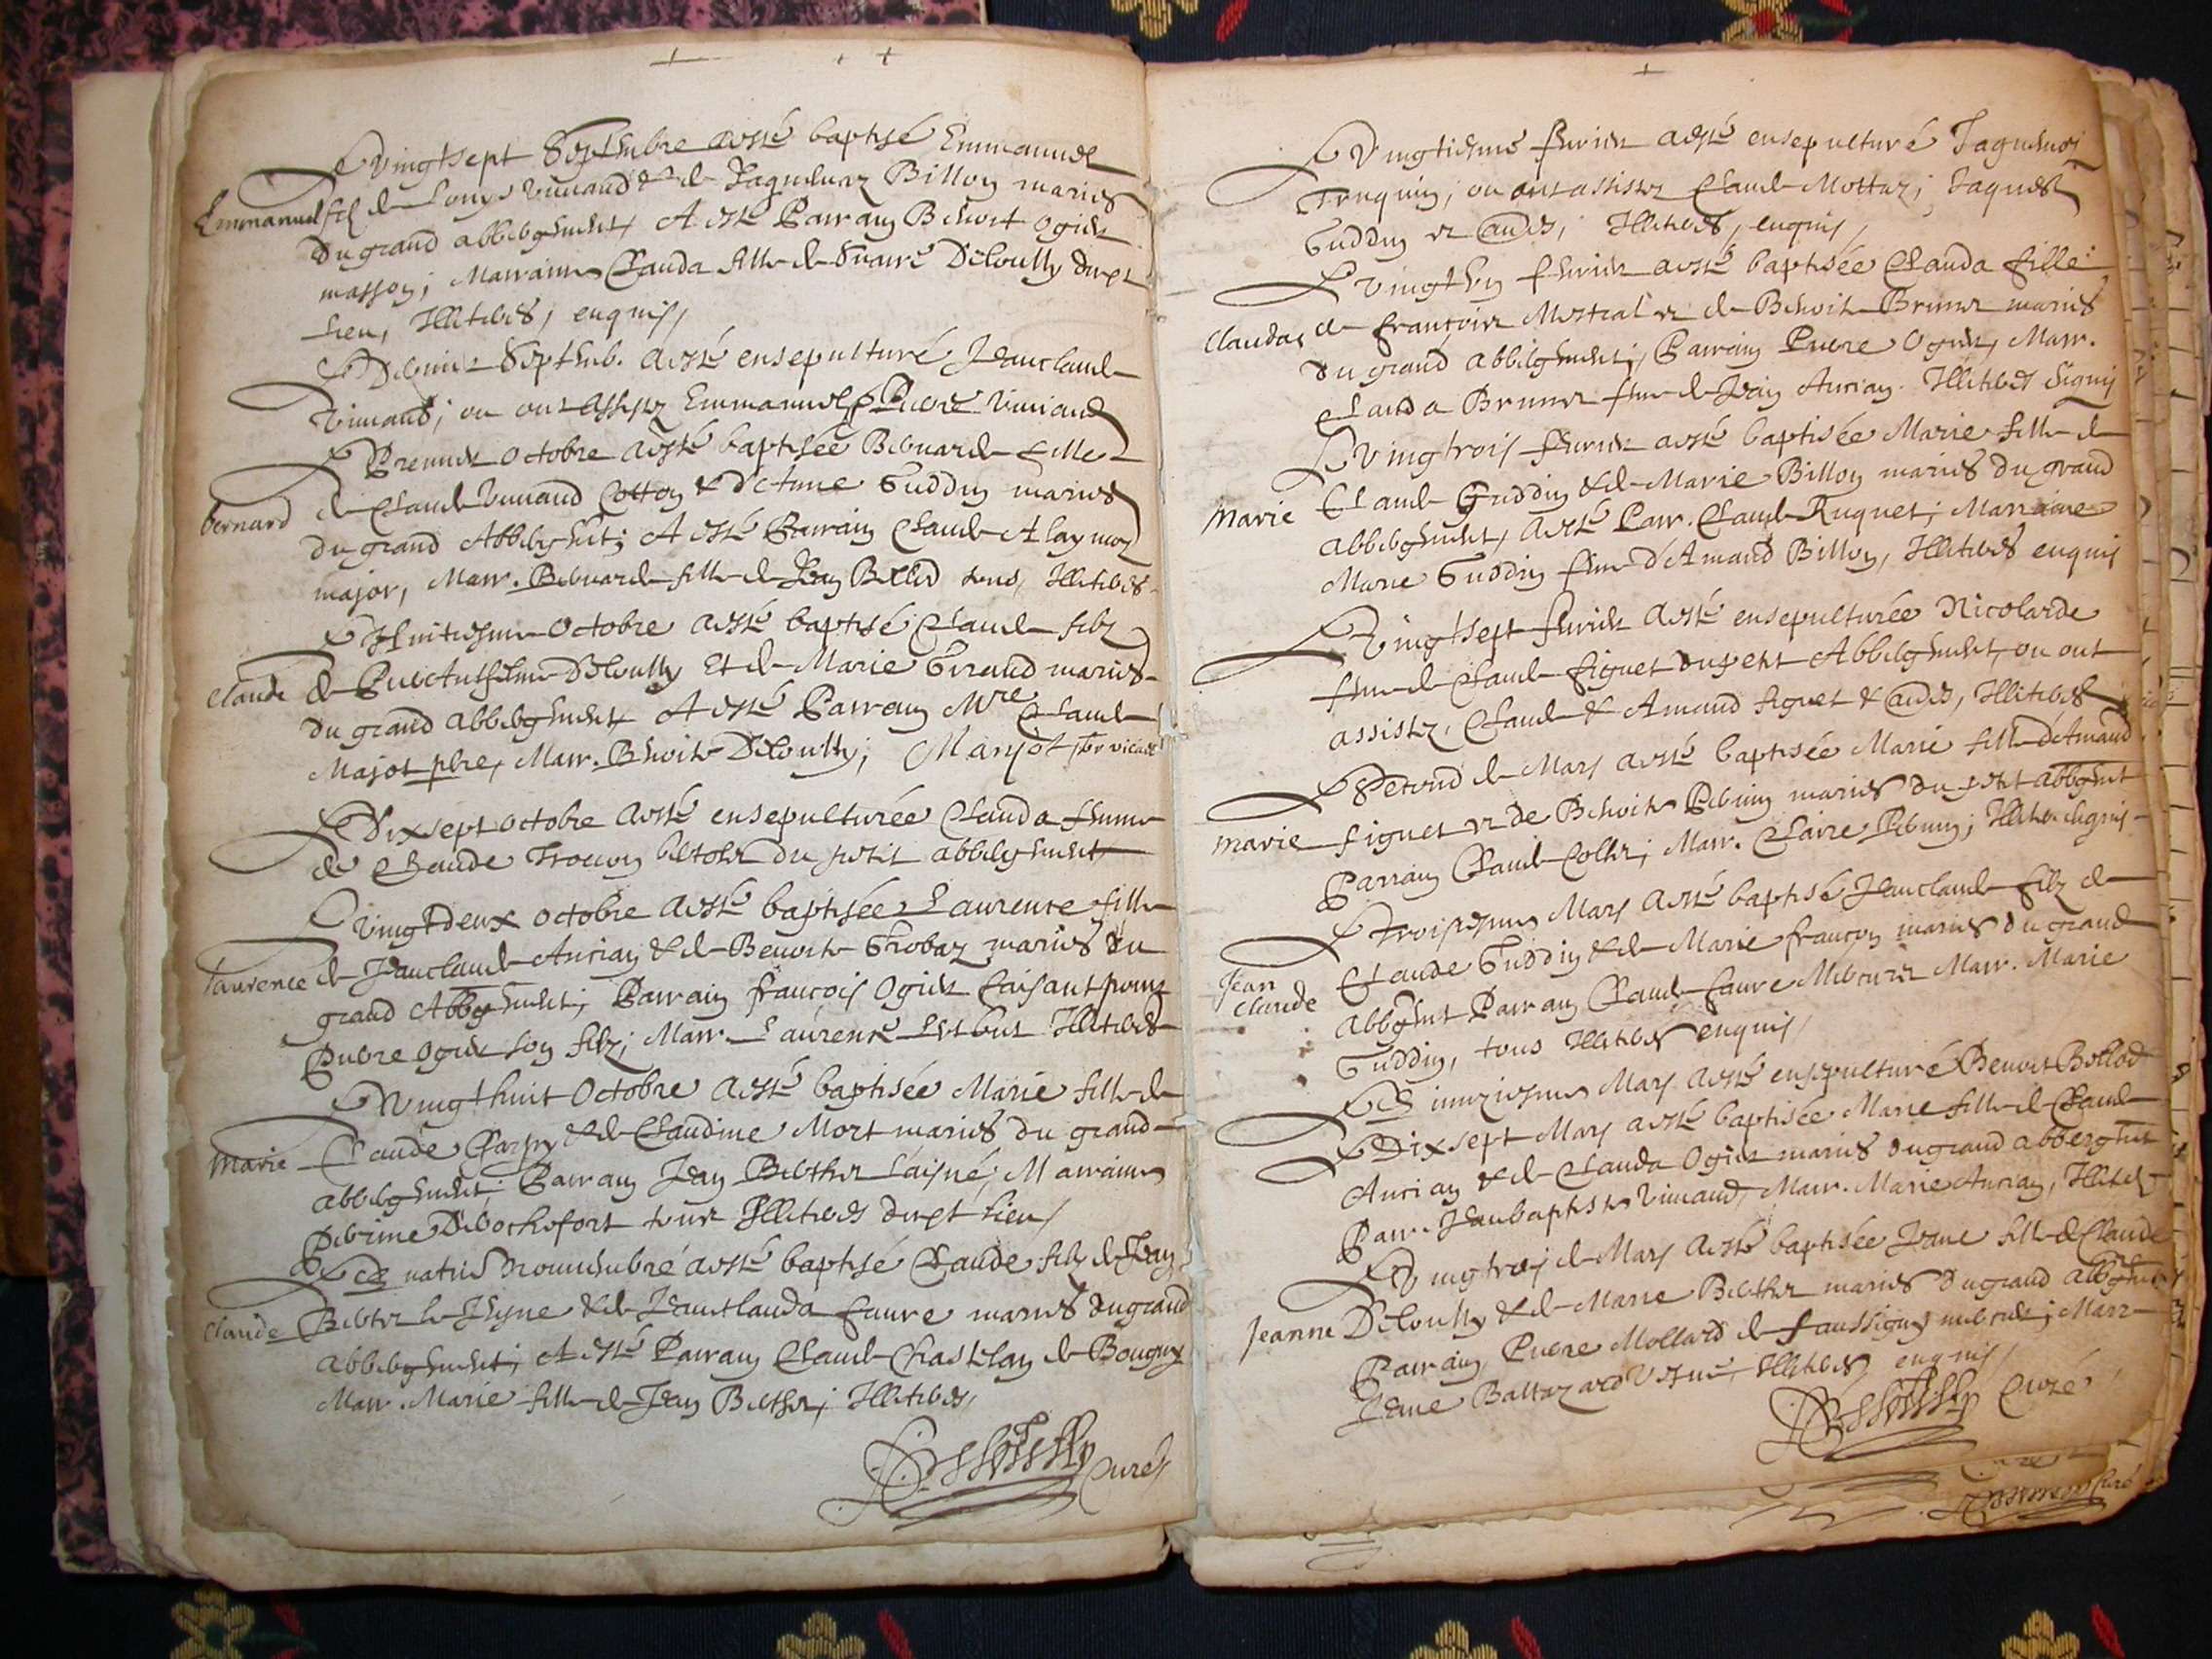 Le vingtsept Septembre a esté baptisé Emmanuel
Emmanuel filz de Louys Vuviand & de Jaquemaz Billon mariés
du grand abbergement, A esté Parrain Benoit Ogier
masson; Marraine Clauda fille de Deloully dudt
lieu, Illiterés, enquis,
Le Dernier Septemb. a esté ensepulturé Jeanclaude
Vuviand; ou ont assistez Emmanuel & Pierre Vuviand
Le Premier Octobre a esté baptisée Bernarde fille
bernard de Claude Vuviand Cotton & d'Anne Guddin mariés
du grand Abbergemt; A esté Parrain Claude Alaymoz
major, Marr. Bernarde fille de Jean Bellod tous, Illiterés
Le Huitiesme Octobre a esté baptisé Claude filz
Claude de Deloully Et de Marie Girand mariés
du grand abbergement A esté Parrain Mre Claude
Major pbre, Marr. Benoite Deloully; Marjot pbr vicaire
Le Dixsept octobre a esté ensepulturée Clauda femme
de Claude du petit abbergement
Le vingtdeux octobre a esté baptisée Laurence fille
Laurence de Jeanclaude Ancian & de Benoite Grobaz mariés du
grand Abbergement; Parrain françois Ogier faisant pour
Pierre Ogier son filz; Marr. Laurence Illiterés
Le Vingthuit Octobre a esté baptisée Marie fille de
Marie Claude & de Claudine Mort mariés du grand
abbergement; Parrain Jean Berthet laisné; Marraine
Pernine De Rochefort tous Illiterés dudt lieu,
Le quatrie Novembre a esté baptisé Claude filz de Jean
Claude Berthet le Jeune & de Jeanclauda faure mariés du grand
abbergement; A esté Parrain Claude Chastelan de Bougny
Marr. Marie fille de Jean Berthet; Illiterés,
Curé
Le Vingtiesme fevrier a esté ensepulturé
Truquin; ou ont assistez Claude Mottaz; Jaques
Guddin et aultres; Illiterés, enquis,
Le vingthun fevrier a esté baptisée Clauda fille
Claudaz de françois Mestral et de Benoite Brunet mariés
du grand abbergement; Parrain Pierre Ogier, Marr.
Clauda Brunet feme de Jean Ancian. Illiterés enquis
Le Vingtrois fevrier a esté baptisée Marie fille de
Marie Claude Guddin & de Marie Billon mariés du grand
abbergement, a esté Parr. Claude Ruquet; Marraine
Marie Guddin feme d'Amand Billon, Illiterés enquis
Le Vingtsept fevrier a esté ensepulturée Nicolarde
feme de Claude figuet du petit Abbergement, ou ont
assistez, Claude & Amand figuet & aultres, Illiterés
Le Second de Mars a esté baptisée Marie fille d'Amand
Marie figuet et de Benoite Pernin mariés du petit abbgemt
Parrain Claude Collet; Marr. Claire Pernin; Illiter. enquis
Le troisiesme Mars a esté baptisé Jeanclaude filz de
Jean Claude Claude Guddin & de Marie françon mariés du grand
abbgemt Parrain Claude faure Mercier Marr. Marie
Guddin, tous Illiterés enquis,
Le Cinquziesme Mars a esté ensepulturé Benoit Bellod
Le Dixsept Mars a esté baptisée Marie fille de Claude
Ancian & de Clauda Ogier mariés du grand abbergemt
Parr. Jeanbaptiste Vuviand, Marr. Marie Ancian, Illiter.
Le Vingtrois de Mars a esté baptisée Jeane fille de Claude
Jeanne Deloully & de Marie Berthet mariés du grand abbgemt
Parrain, Pierre Mollard de faussigny mercier; Marr
Jeane Baltazard Illiterés enquis,
Curé